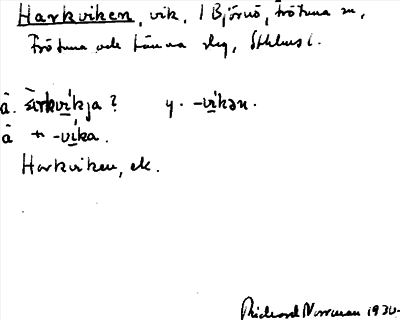 Harkviken, vik, i Björnö, Frötuna sn,
Frötuna och Länna skg, Sthlms l.
å. ärkvikja? y. -vikən.
å + -vika.
Harkviken, ek.
Rickard Norrman 1930.